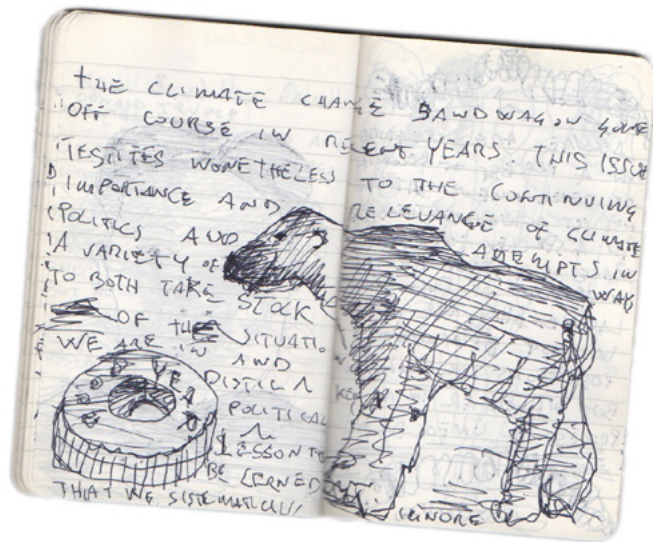 THE CLIMATE CHANGE BANDWAGON GONE
OFF COURSE IN RECENT YEARS. THIS ISSUE
TESTITES NONETHELESS TO THE CONTINUING
IMPORTANCE AND RELEVANCE OF CLIMATE
POLITICS AND ATTEMPTS IN
A VARIETY OF WAY
TO BOTH TAKE STOCK
OF THE SITUATIO
WE ARE IN AND
DISTIL A
POLITICAL
LESSON TO
BE LERNED
THAT WE SISTEMATICALLY
IGNORE
GOOD YEAR